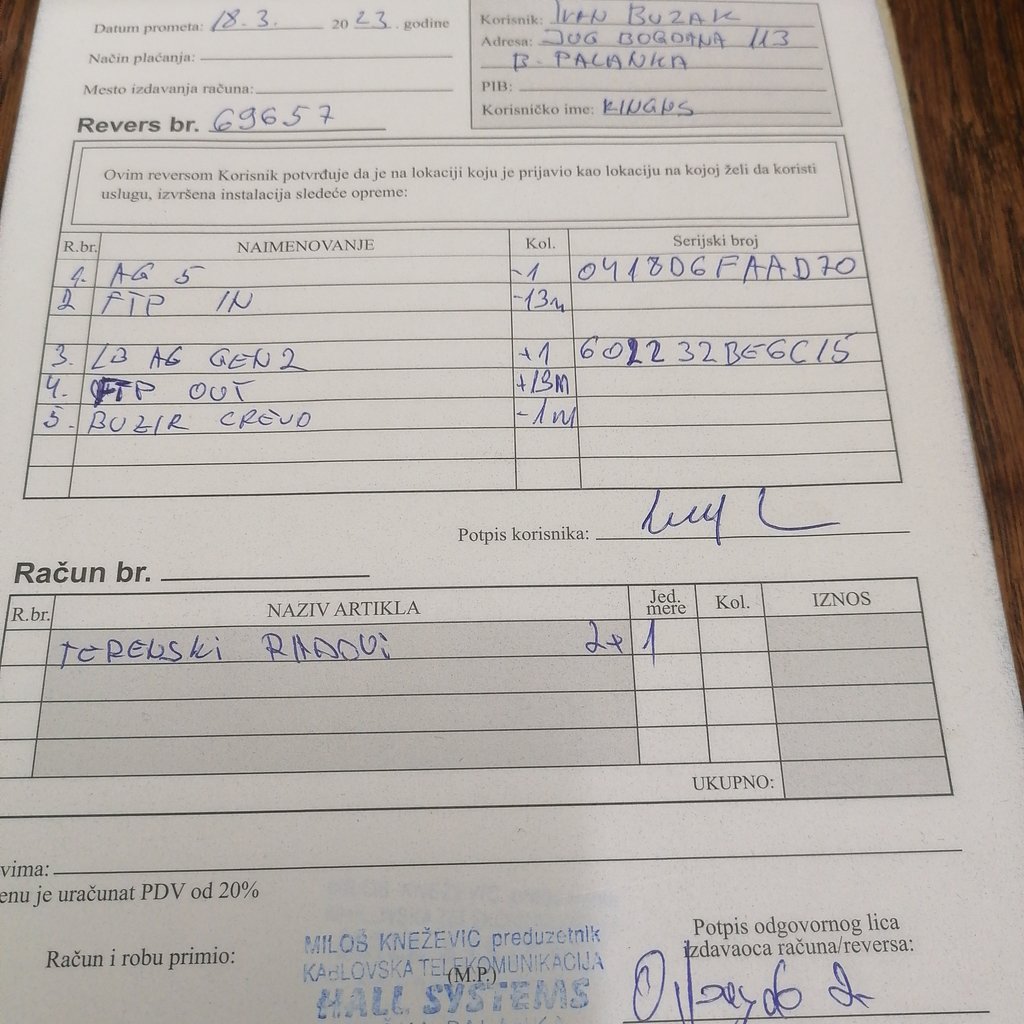 Datum prometa: 18.3. 2023. godine
Način plaćanja:
Mesto izdavanja računa:
Revers br. 69657
Korisnik: IVAN BUZAK
Adresa: JUG BOGDANA 113
B. PALANKA
PIB:
Korisničko ime:
Ovim reversom Korisnik potvrđuje da je na lokaciji koju je prijavio kao lokaciju na kojoj želi da koristi
uslugu, izvršena instalacija sledeće opreme:
R.br. NAIMENOVANJE Kol. Serijski broj
1. AG 5 -1 041806FAAD70
2 FTP IN -13m
3. LB AG GEN2 +1 602232BE6C15
4. FTP OUT +13M
5. BUZIR CREVO -1m
Potpis korisnika:
Račun br.
R.br. NAZIV ARTIKLA Jed. mere Kol. IZNOS
TERENSKI RADOVI 2x 1
UKUPNO:
vima:
enu je uračunat PDV od 20%
Račun i robu primio:
MILOŠ KNEŽEVIĆ preduzetnik
KABLOVSKA TELEKOMUNIKACIJA
(M.P.)
HALL SYSTEMS
Potpis odgovornog lica
izdavaoca računa/reversa: